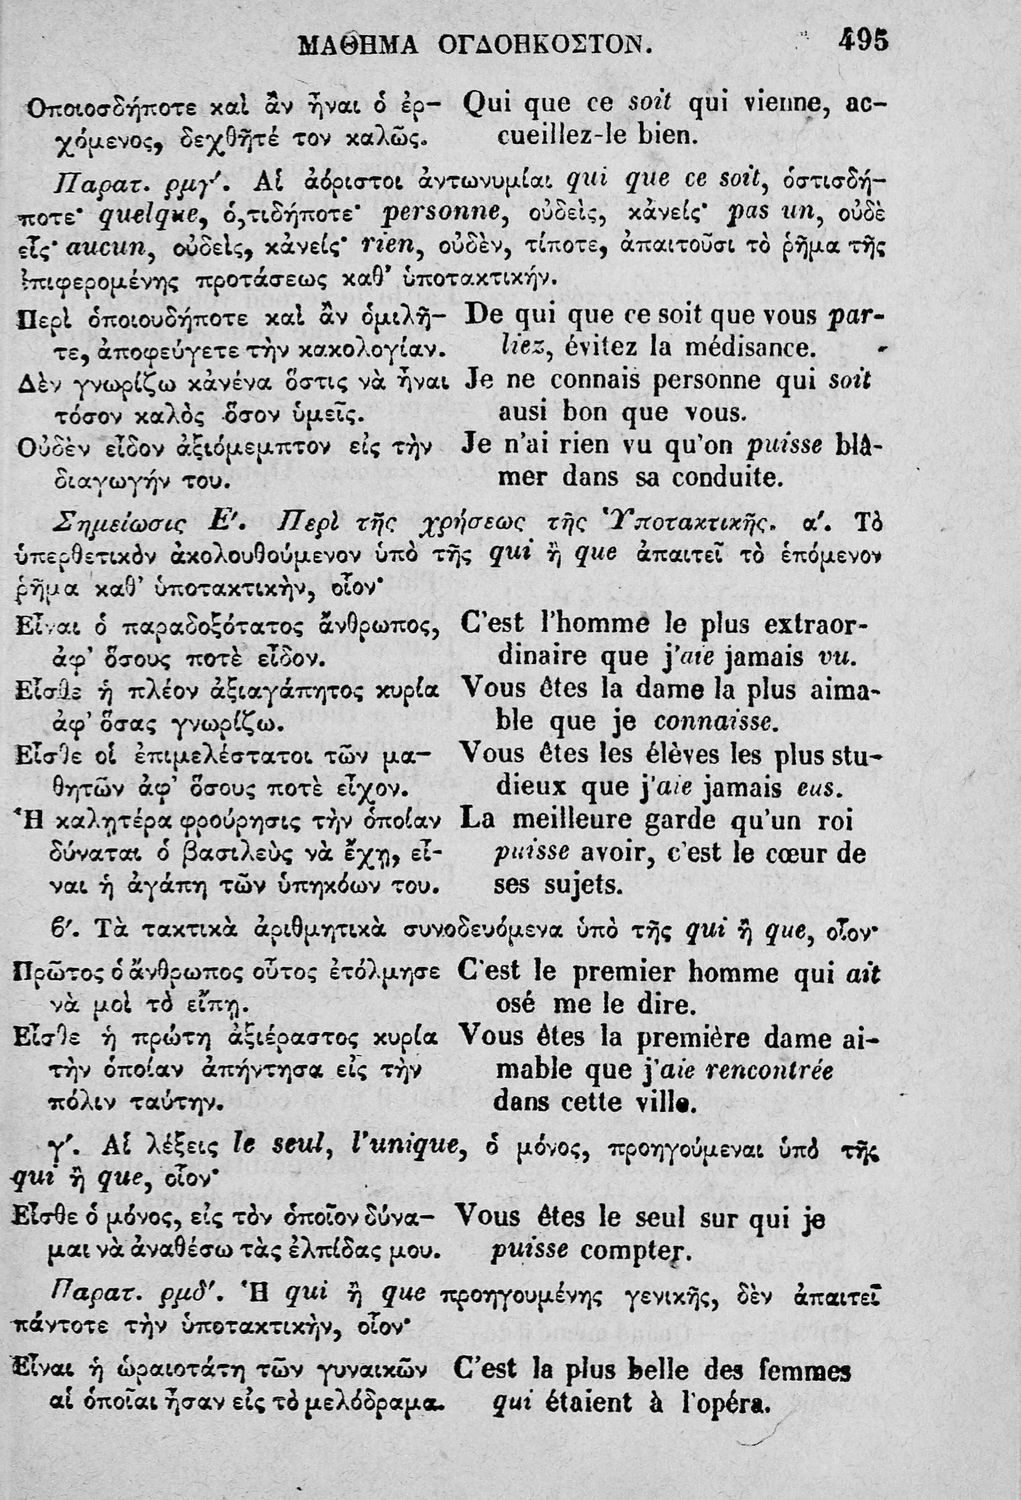 ΜΑΘΗΜΑ ΟΓΔΟΗΚΟΣΤΟΝ. 495
Ὁποιοσδήποτε καὶ ἂν ἦναι ὁ ἐρ- Qui que ce soit qui vienne, ac-
χόμενος, δεχθῆτέ τον καλῶς. cueillez-le bien.
Παρατ. ρμγʹ. Αἱ ἀόριστοι ἀντωνυμίαι qui que ce soit, ὁστισδή-
ποτε· quelque, ὁ,τιδήποτε· personne, οὐδεὶς, κἀνείς· pas un, οὐδὲ
εἷς· aucun, οὐδεὶς, κἀνείς· rien, οὐδὲν, τίποτε, ἀπαιτοῦσι τὸ ῥῆμα τῆς
ἐπιφερομένης προτάσεως καθ’ ὑποτακτικήν.
Περὶ ὁποιουδήποτε καὶ ἂν ὁμιλῆ- De qui que ce soit que vous par-
τε, ἀποφεύγετε τὴν κακολογίαν. liez, évitez la médisance.
Δὲν γνωρίζω κἀνένα ὅστις νὰ ἦναι Je ne connais personne qui soit
τόσον καλὸς ὅσον ὑμεῖς. ausi bon que vous.
Οὐδὲν εἶδον ἀξιόμεμπτον εἰς τὴν Je n'ai rien vu qu'on puisse blâ-
διαγωγήν του. mer dans sa conduite.
Σημείωσις Εʹ. Περὶ τῆς χρήσεως τῆς Ὑποτακτικῆς. αʹ. Τὸ
ὑπερθετικὸν ἀκολουθούμενον ὑπὸ τῆς qui ἢ que ἀπαιτεῖ τὸ ἑπόμενον
ῥῆμα καθ’ ὑποτακτικὴν, οἷον·
Εἶναι ὁ παραδοξότατος ἄνθρωπος, C'est l'homme le plus extraor-
ἀφ’ ὅσους ποτὲ εἶδον. dinaire que j'aie jamais vu.
Εἶσθε ἡ πλέον ἀξιαγάπητος κυρία Vous êtes la dame la plus aima-
ἀφ’ ὅσας γνωρίζω. ble que je connaisse.
Εἶσθε οἱ ἐπιμελέστατοι τῶν μα- Vous êtes les élèves les plus stu-
θητῶν ἀφ’ ὅσους ποτὲ εἶχον. dieux que j'aie jamais eus.
Ἡ καλητέρα φρούρησις τὴν ὁποίαν La meilleure garde qu'un roi
δύναται ὁ βασιλεὺς νὰ ἔχῃ, εἶ- puisse avoir, c'est le cœur de
ναι ἡ ἀγάπη τῶν ὑπηκόων του. ses sujets.
βʹ. Τὰ τακτικὰ ἀριθμητικὰ συνοδευόμενα ὑπὸ τῆς qui ἢ que, οἷον·
Πρῶτος ὁ ἄνθρωπος οὗτος ἐτόλμησε C'est le premier homme qui ait
νὰ μοὶ τὸ εἴπῃ. osé me le dire.
Εἶσθε ἡ πρώτη ἀξιέραστος κυρία Vous êtes la première dame ai-
τὴν ὁποίαν ἀπήντησα εἰς τὴν mable que j'aie rencontrée
πόλιν ταύτην. dans cette ville.
γʹ. Αἱ λέξεις le seul, l'unique, ὁ μόνος, προηγούμεναι ὑπὸ τῆς
qui ἢ que, οἷον·
Εἶσθε ὁ μόνος, εἰς τὸν ὁποῖον δύνα- Vous êtes le seul sur qui je
μαι νὰ ἀναθέσω τὰς ἐλπίδας μου. puisse compter.
Παρατ. ρμδʹ. Ἡ qui ἢ que προηγουμένης γενικῆς, δὲν ἀπαιτεῖ
πάντοτε τὴν ὑποτακτικὴν, οἷον·
Εἶναι ἡ ὡραιοτάτη τῶν γυναικῶν C'est la plus belle des femmes
αἱ ὁποῖαι ἦσαν εἰς τὸ μελόδραμα. qui étaient à l'opéra.